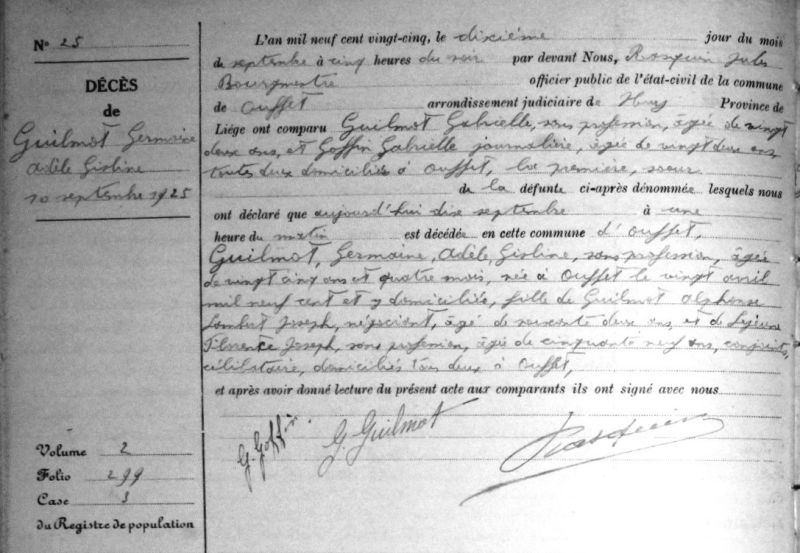 N° 25
DÉCÈS
de
Guilmot Germaine
Adèle Gisline
10 septembre 1925
Volume 2
Folio 299
Case 3
du Registre de population
L'an mil neuf cent vingt-cinq, le dixième jour du mois
de septembre à cinq heures du soir par devant Nous, Rasquin Jules
Bourgmestre officier public de l'état-civil de la commune
de Ouffet arrondissement judiciaire de Huy Province de
Liége ont comparu Guilmot Gabrielle, sans profession, âgée de vingt
deux ans, et Goffin Gabrielle journalière, âgée de vingt deux ans
toutes deux domiciliées à Ouffet, la première, soeur
de la défunte ci-après dénommée lesquels nous
ont déclaré que aujourd'hui dix septembre à une
heure du matin est décédée en cette commune d'Ouffet,
Guilmot, Germaine, Adèle, Gisline, sans profession, âgée
de vingt cinq ans et quatre mois, née à Ouffet le vingt avril
mil neuf cent et y domiciliée, fille de Guilmot Alphonse
Lambert Joseph, négociant, âgé de soixante deux ans, et de Lejeune
Florence Joseph, sans profession, âgée de cinquante neuf ans, conjoints,
célibataire, domiciliés tous deux à Ouffet,
et après avoir donné lecture du présent acte aux comparants ils ont signé avec nous
G. Goffin. G. Guilmot Rasquin